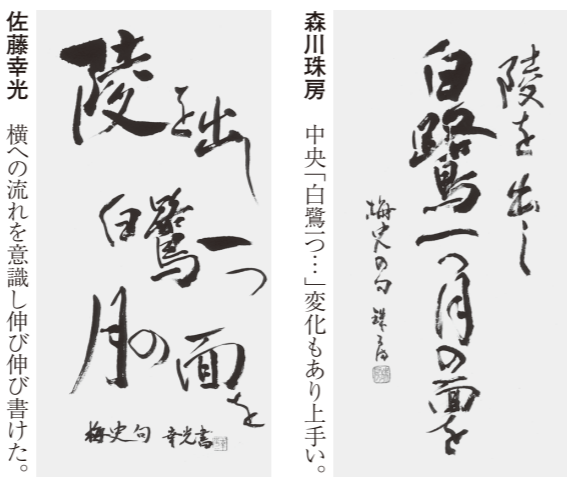 森川珠房 中央「白鷺一つ…」変化もあり上手い。
陵を出し
白鷺一つ月の面を
梅史の句 珠房
佐藤幸光 横への流れを意識し伸び伸び書けた。
陵を出し
白鷺一つ
月の面を
梅史句 幸光書